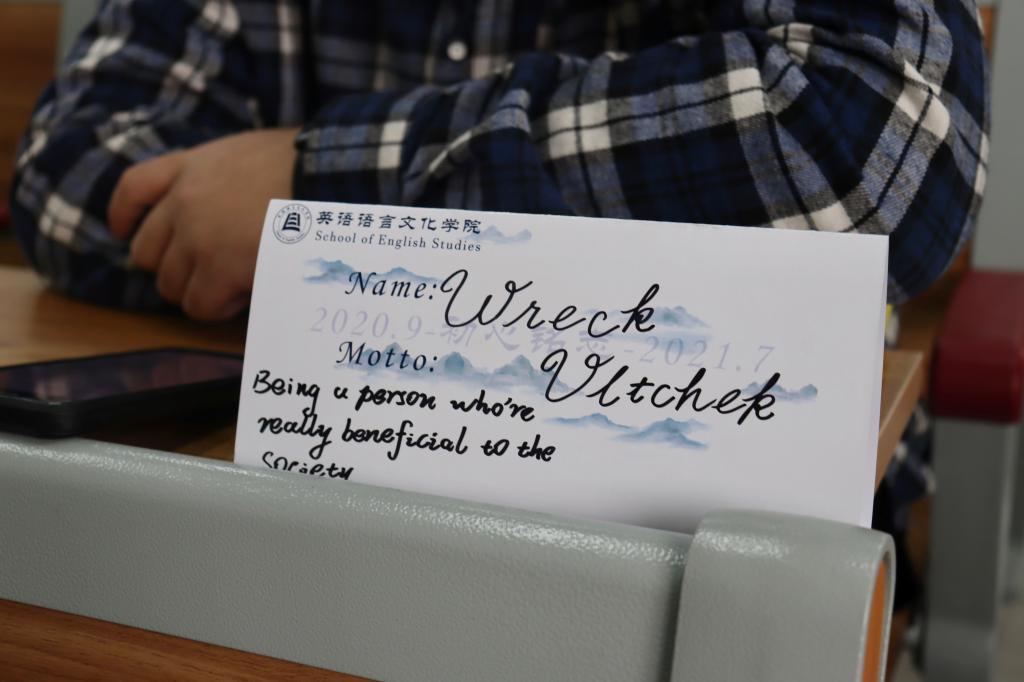 英语语言文化学院
School of English Studies
Name: Wreck
2020.9-初心铭志-2021.7
Motto: Vltchek
Being a person who're
really beneficial to the
society